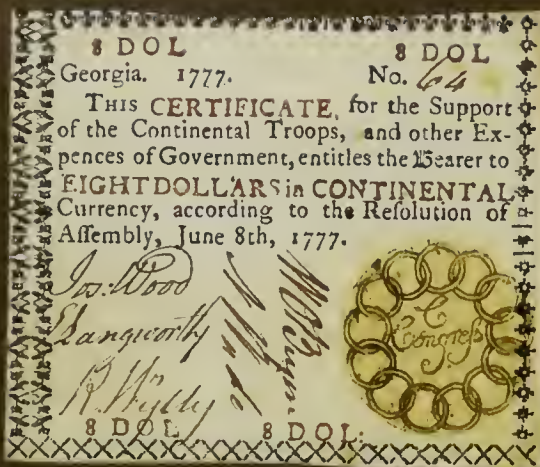 8 DOL 8 DOL
Georgia. 1777. No. 64
THIS CERTIFICATE, for the Support
of the Continental Troops, and other Ex-
pences of Government, entitles the Bearer to
EIGHT DOLLARS in CONTINENTAL
Currency, according to the Reſolution of
Aſſembly, June 8th, 1777.
Jos: Wood
Langworthy
R. Wm Wylly
C
Congreſs
8 DOL 8 DOL: